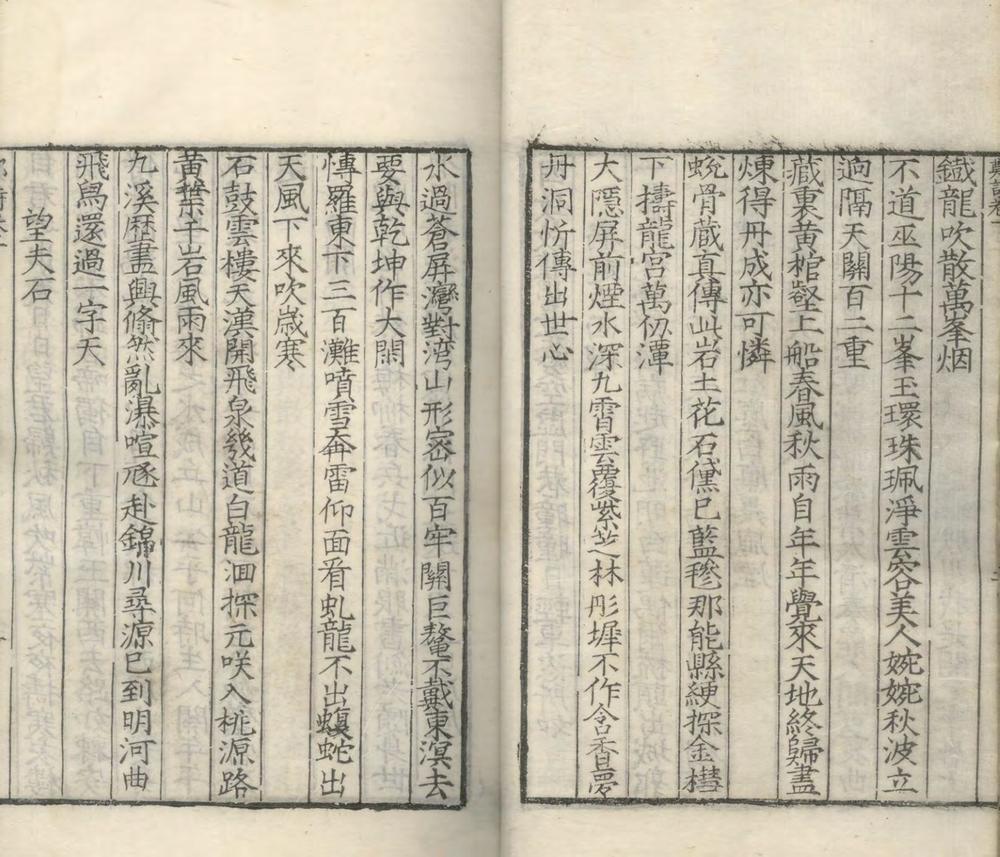 鐵龍吹散萬峯烟
不道巫陽十二峯玉環珠珮淨雲容美人婉婉秋波立
逈隔天關百二重
藏裏黃棺壑上船春風秋雨自年年覺來天地終歸盡
煉得丹成亦可憐
蛻骨蔵真傳此岩土花石黛已藍毿那能縣綆探金櫘
下擣龍宮萬仭潭
大隱屏前煙水深九霄雲覆紫芝林彤墀不作含香夢
丹洞忻傳出世心
水過蒼屏灣對湾山形密似百牢關巨鼇不戴東溟去
要與乾坤作大閑
慱羅東下三百灘噴雪奔雷仰面看虬龍不出蛇出
天風下來吹歲寒
石鼓雲樓天漢開飛泉幾道白龍洄探元咲入桃源路
黃葉千岩風雨來
九溪歷盡興翛然亂瀑喧豗赴錦川尋源已到明河曲
飛舄還過一字天
望夫石